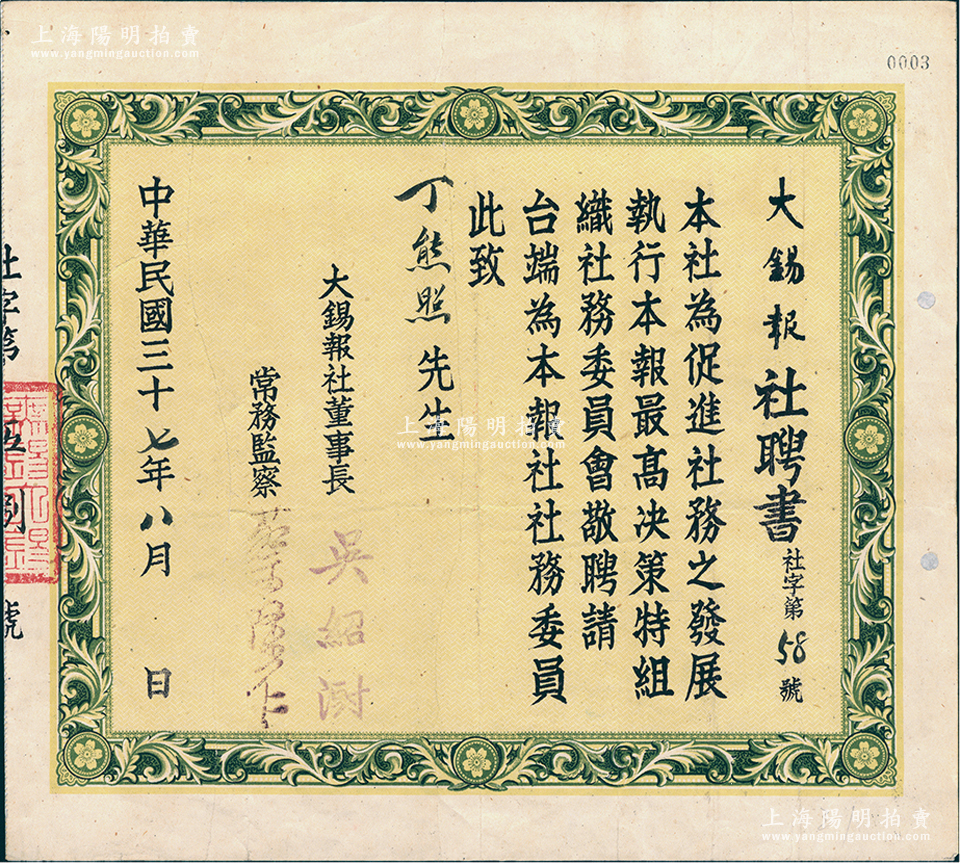 上海陽明拍賣
www.yangmingauction.com
0003
大錫報社聘書
社字第58號
本社為促進社務之發展
執行本報最高決策特組
織社務委員會敬聘請
台端為本報社社務委員
此致
丁熊照先生
大錫報社董事長 吳紹澍
常務監察
中華民國三十七年八月 日
社字第伍捌號
上海陽明拍賣
www.yangmingauction.com
上海陽明拍賣
www.yangmingauction.com